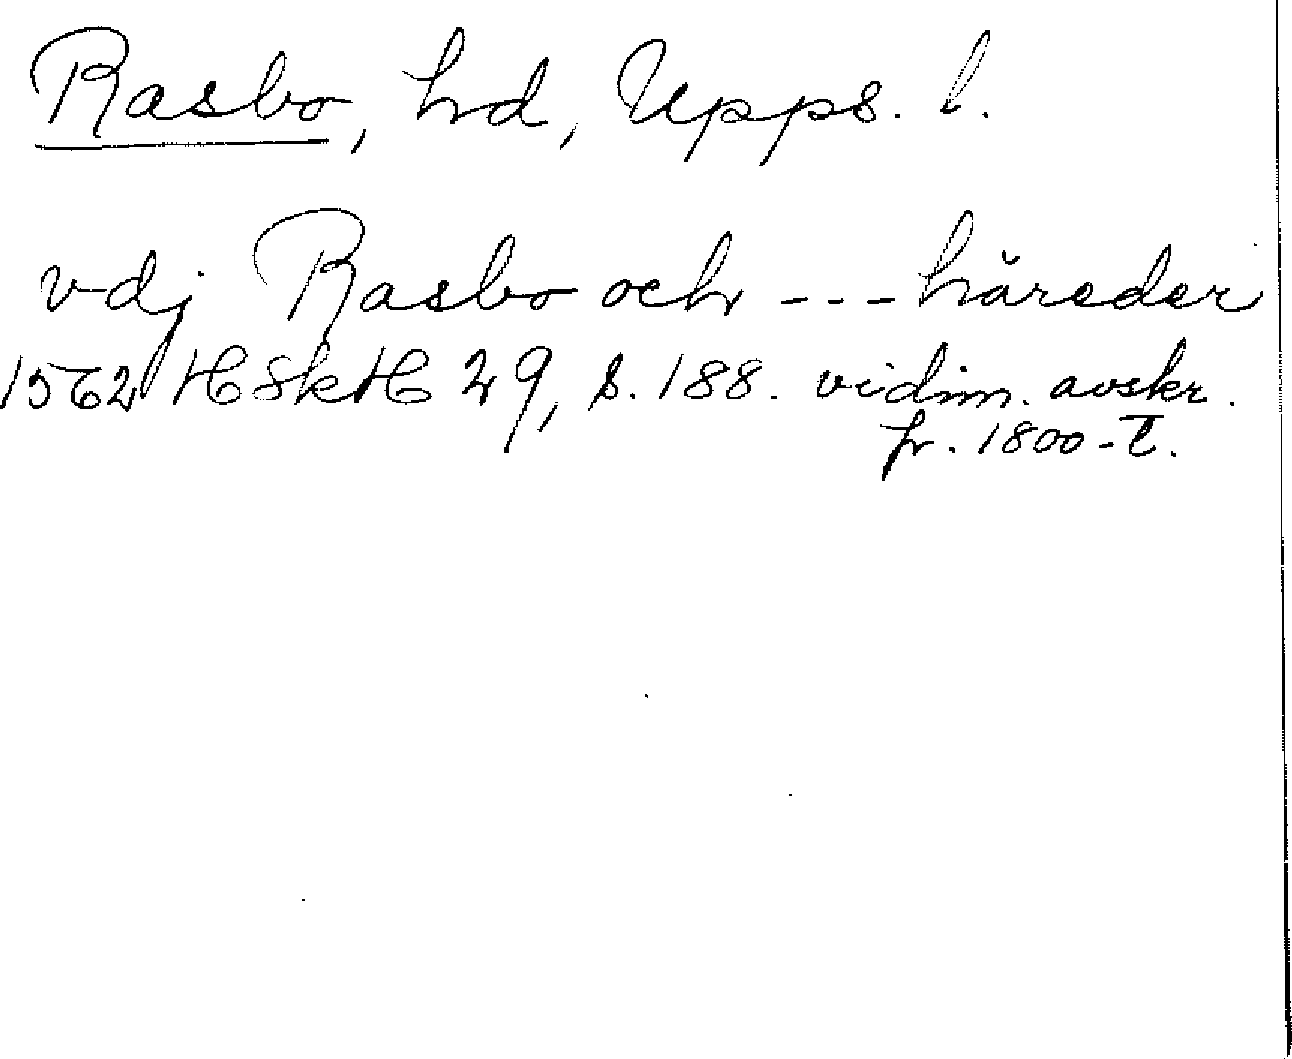 Rasbo, hd, Upps. l.
vdj Rasbo och --- håreder
1562 HSkH 29, s. 188. vidim. avskr.
fr. 1800-t.